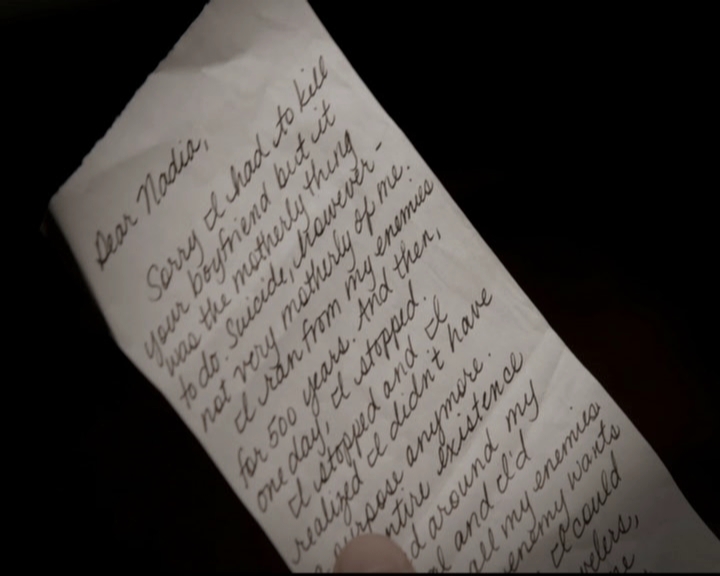 Dear Nadia,
Sorry I had to kill
your boyfriend but it
was the motherly thing
to do. Suicide, however-
not very motherly of me.
I ran from my enemies
for 500 years. And then,
one day, I stopped.
I stopped and I
realized I didn't have
purpose anymore.
entire existence
d around my
l and I'd
all my enemies
enemy wants
I could
velers,
me